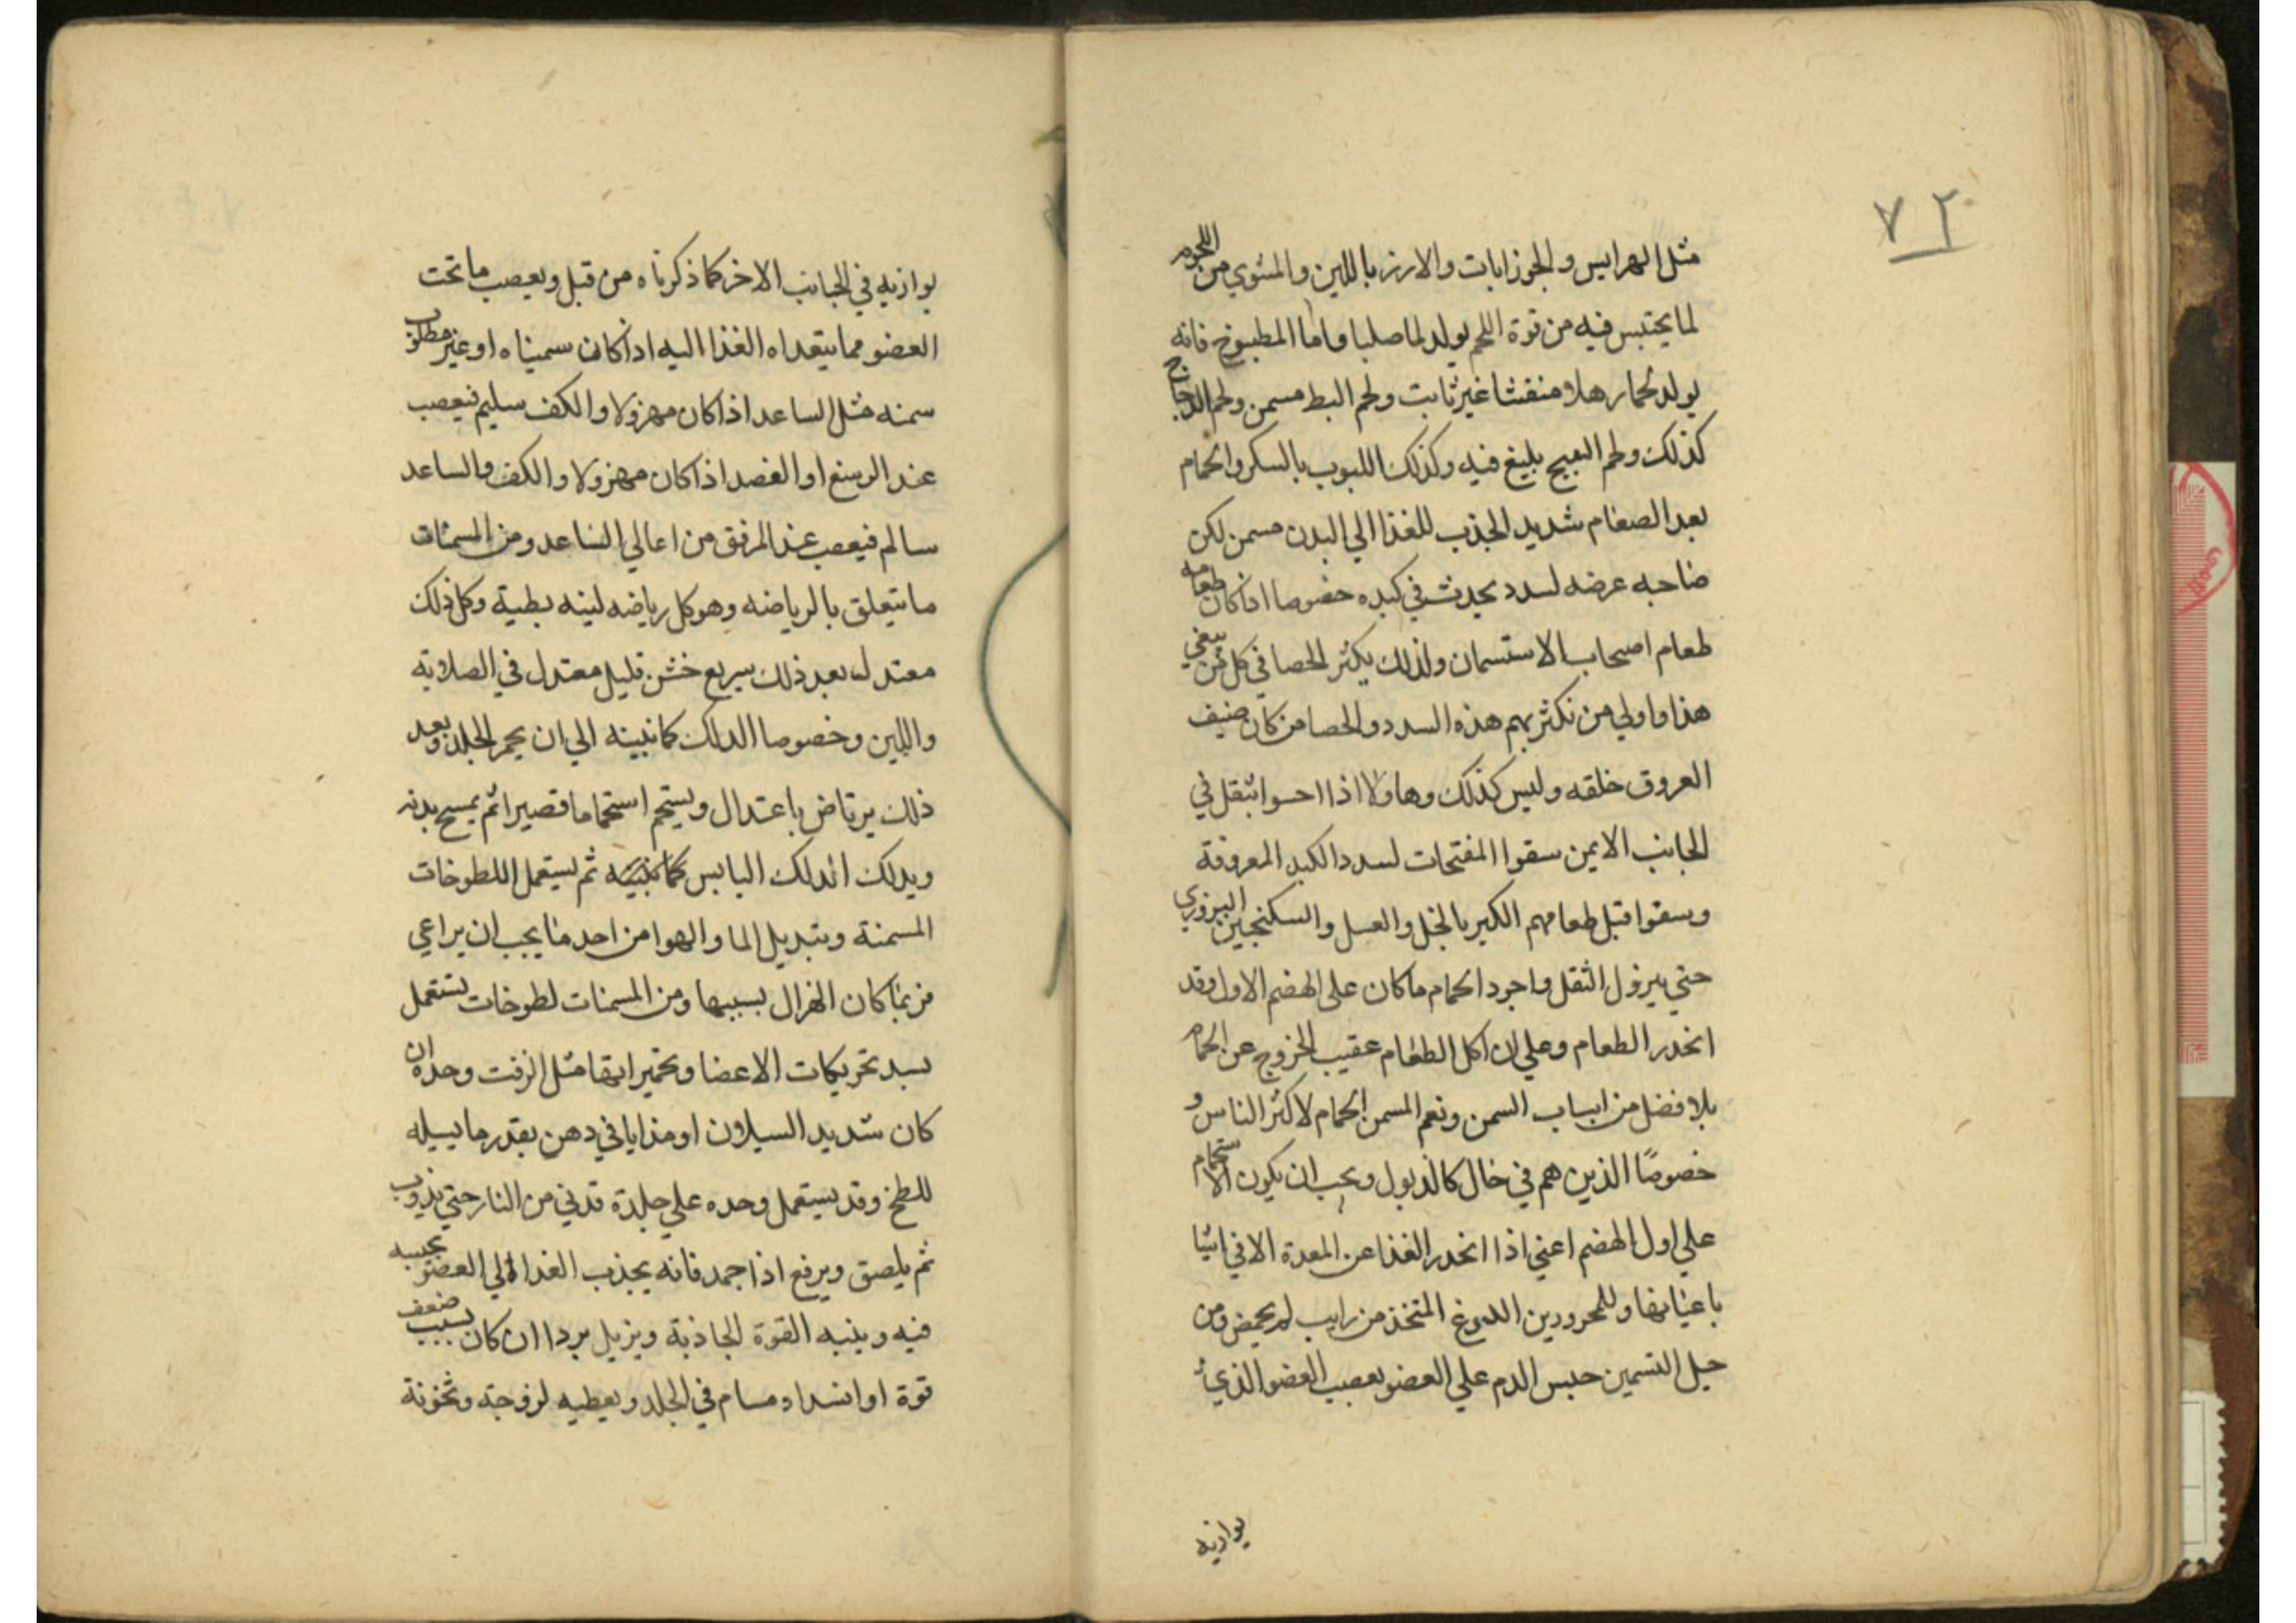 ٧٢
مثل الهرايس والجوزابات والارز باللبن والمشوي من اللحوم
لما يحتبس فيه من قوة اللحم يولد لحما صلبا واما المطبوخ فانه
يولد لحما رهلا منفشا غير ثابت ولحم البط مسمن ولحم الدجاج
كذلك ولحم القبج بليغ فيه وكذلك اللبوب بالسكر والحمام
بعد الطعام شديد الجذب للغذا الي البدن مسمن لكن
صاحبه عرضه لسدد يحدث في كبده خصوصا اذا كان طعامه
طعام اصحاب الاستسمان ولذلك يكثر الحصا في كل من يبغي
هذا واولي من تكثر بهم هذه السدد والحصا من كان ضيف
العروق خلقه وليس كذلك وهاولا اذا احسوا بثقل في
الجانب الايمن سقوا المفتحات لسدد الكبد المعروفة
وسقوا قبل طعامهم الكبر بالخل والعسل والسكنجبين البزوري
حتي يزول الثقل واجود الحمام ما كان على الهضم الاول وقد
انحدر الطعام وعلي ان اكل الطعام عقيب الخروج عن الحمام
بلا فضل من اسباب السمن ونعم المسمن الحمام لاكثر الناس و
خصوصًا الذين هم في حال كالذبول ويجب ان يكون الاستحمام
علي اول الهضم اعني اذا انحدر الغذا عن المعدة الا في اشيا
باعيانها وللمحرورين الدوغ المتخذ من رايب لم يحمض ومن
حيل التسمين حبس الدم علي العضو بعصب العضو الذي
يوازيه
يوازيه في الجانب الاخر كما ذكرناه من قبل وبعصب ما تحت
العضو مما يتعداه الغذا اليه اذا كان سميناه او غير مطلوب
سمنه مثل الساعد اذا كان مهزولا والكف سليم فيعصب
عند الرسغ او العضد اذا كان مهزولا والكف والساعد
سالم فيعصب عند المرفق من اعالي الساعد ومن المسمنات
ما يتعلق بالرياضه وهو كل رياضه لينه بطية وكل ذلك
معتدل بعد ذلك سريع خشن قليل معتدل في الصلابة
واللين وخصوصا الدلك كما نبينه الي ان يحمر الجلد وبعد
ذلك يرتاض باعتدال ويستحم استحماما قصيرا ثم يمسح بدنه
ويدلك الدلك اليابس كما نبينه ثم يستعمل اللطوخات
المسمنة وبتبديل الما والهوا من احد ما يجب ان يراعي
فربما كان الهزال بسببها ومن المسمنات لطوخات تستعمل
بعد تحريكات الاعضا وتحميرايها مثل الزفت وحده ان
كان شديد السيلان او مذابا في دهن بقدر ما يسيله
للطخ وقد يستعمل وحده علي جلدة قدني من النار حتي يذوب
ثم يلصق ويرفع اذا جمد فانه يجذب الغذا الي العضو بحبسه
فيه وينبه القوة الجاذبة ويزيل بردا ان كان بسبب ضعف
قوة او انسداد مسام في الجلد ويعطيه لزوجة وثخونة